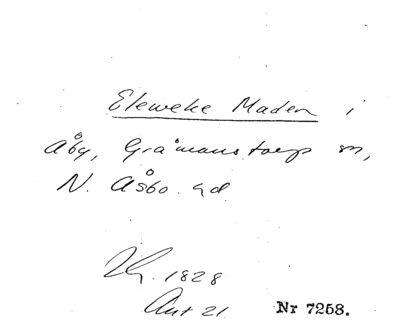 Eleweke Maden i
Åby, Gråmanstorp sn,
N. Åsbo hd
1828
Akt 21. Nr 7258.